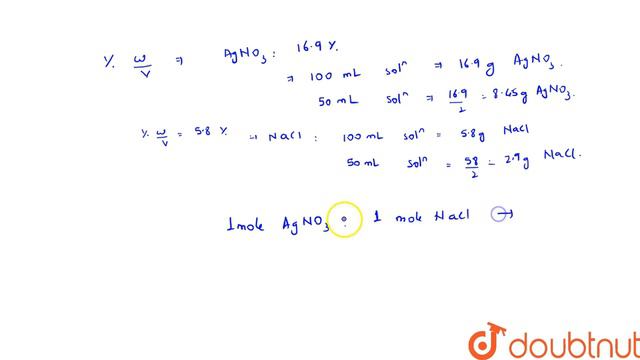 % w/v ⇒ AgNO₃ : 16.9 %.
⇒ 100 mL solⁿ ⇒ 16.9 g AgNO₃.
50 mL solⁿ ⇒ 16.9/2 = 8.45 g AgNO₃.
% w/v = 5.8 % → NaCl : 100 mL solⁿ = 5.8 g NaCl
50 mL solⁿ = 58/2 = 2.9 g NaCl.
1 mole AgNO₃ : 1 mole NaCl →
doubtnut